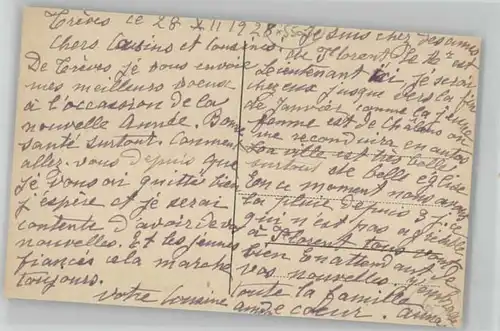 Trèves le 28 XII 1928
Chers Cousins et Cousines
De Trèves je vous envoie
mes meilleurs voeux
à l'occasion de la
nouvelle Année. Bonne
santé surtout. Comment
allez-vous depuis que
je vous ai quittés bien
j'espère et je serai
contente d'avoir de vos
nouvelles. Et les jeunes
fiancés cla marche
toujours.
votre Cousine
Je suis chez des amis
de Florent le est
Lieutenant ici je serai
chez eux jusque vers la fin
de Janvier comme la jeune
femme est de Châlons on
me reconduira en auto
La ville est très belle
surtout de belle église
En ce moment nous avons
la pluie depuis 3 j ce
qui n'est pas agréable
à Florent tous vont
bien En attendant de
vos nouvelles
toute la famille
de coeur.